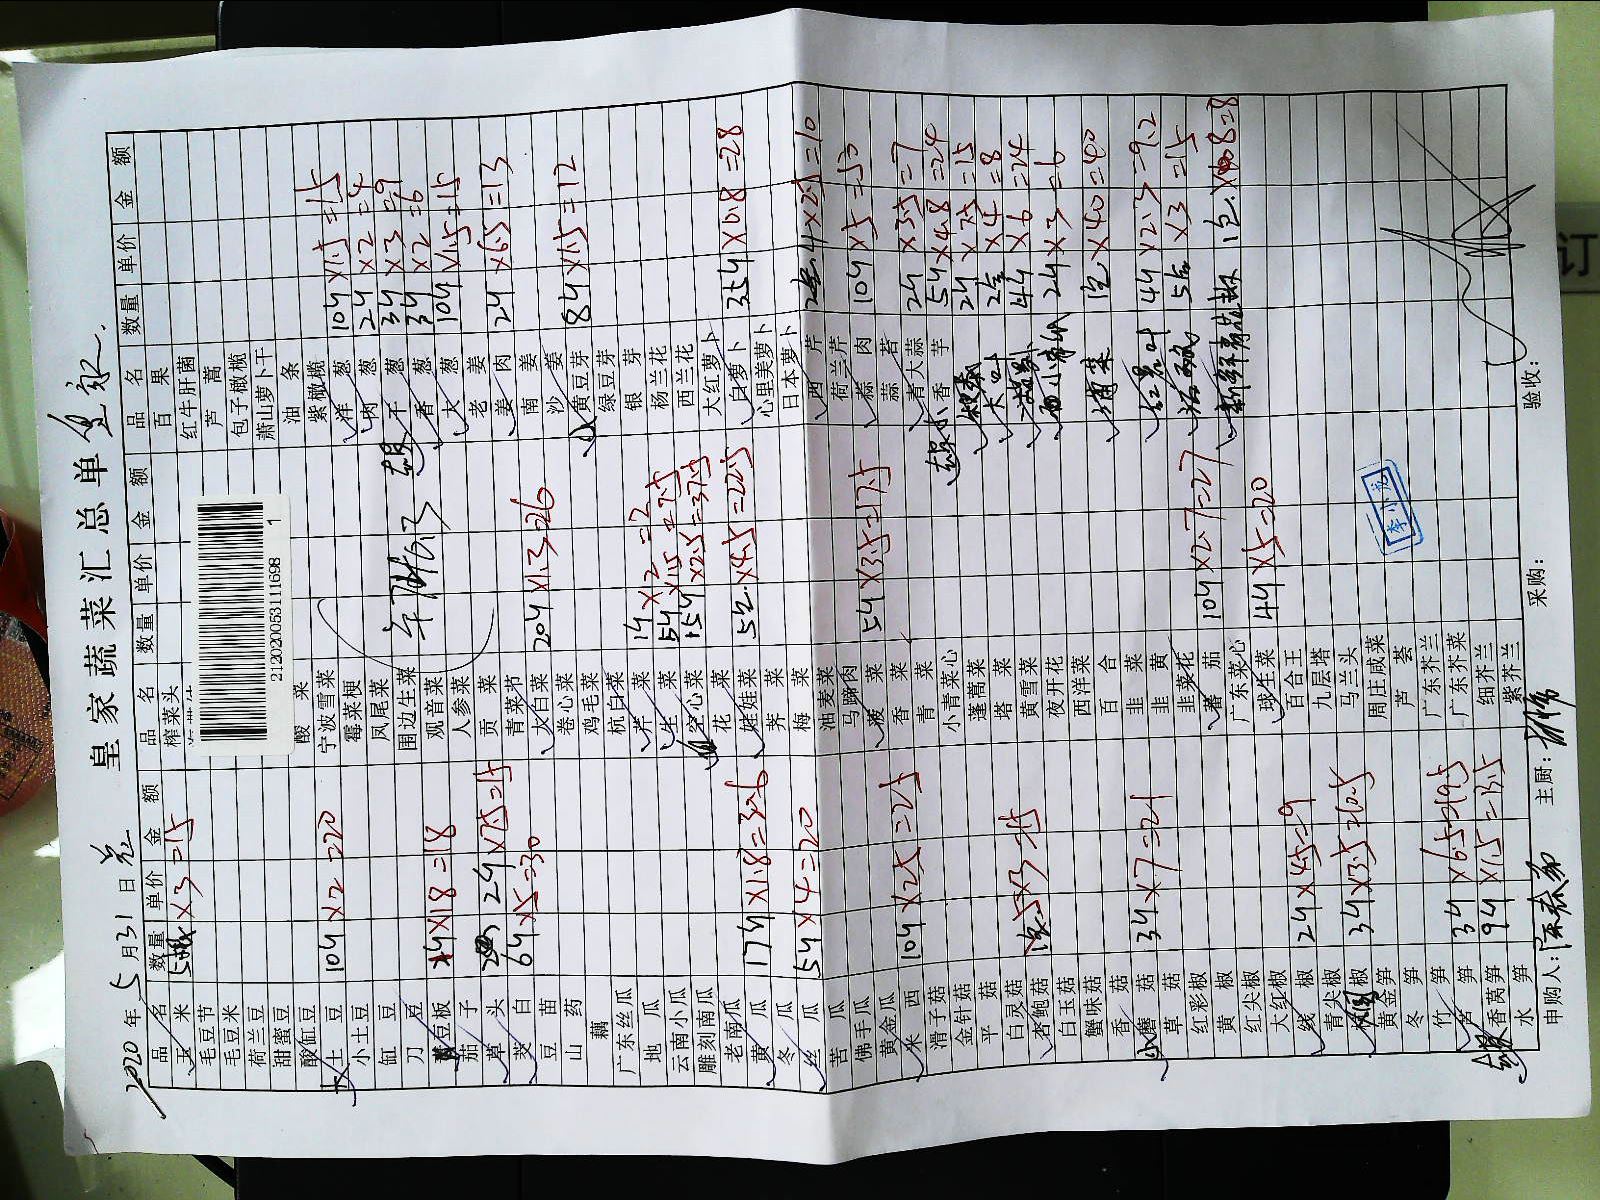 皇家蔬菜汇总单
2020年5月31日
品名 数量 单价 金额 品名 数量 单价 金额 品名 数量 单价 金额
玉米 ×3=15 榨菜头 百果
毛豆节 红牛肝菌
毛豆米 芦蒿
荷兰豆 包子橄榄
甜蜜豆 萧山萝卜干
酸豇豆 酸菜 油条
大土豆 10斤×2=20 宁波雪菜 紫橄榄
小土豆 霉菜梗 洋葱 10斤×1.5=15
豇豆 凤尾菜 肉葱 2斤×2=4
刀豆 围边生菜 干葱 3斤×3=9
豆板 ×18=18 观音菜 香葱 3斤×2=6
茄子 人参菜 大葱 10斤×1.5=15
草头 2斤×7.5=15 贡菜 老姜
茭白 6斤×5=30 青菜节 姜肉 2斤×6.5=13
豆苗 大白菜 20斤×1.3=26 南姜
山药 卷心菜 沙姜
藕 鸡毛菜 黄豆芽 8斤×1.5=12
广东丝瓜 杭白菜 绿豆芽
地瓜 芹菜 1斤×2=2 银芽
云南小瓜 生菜 5斤×1.5=7.5 杨兰花
雕刻南瓜 空心菜 15斤×2.5=37.5 西兰花
老南瓜 花菜 大红萝卜
黄瓜 17斤×1.8=30.6 娃娃菜 ×4.5=22.5 白萝卜 35斤×0.8=28
冬瓜 荠菜 心里美萝卜
丝瓜 5斤×4=20 梅菜 日本萝卜
苦瓜 油麦菜 西芹 ×2.5=10
佛手瓜 马蹄肉 荷兰芹
黄金瓜 菠菜 5斤×3.5=17.5 蒜肉 10斤×5=50
米西 10斤×2.5=25 香菜 蒜苔
滑子菇 青菜 青大蒜 2斤×3.5=7
金针菇 小青菜心 香芋 5斤×4.8=24
平菇 蓬蒿菜 2斤×7.5=15
白灵菇 塔菜 ×4=8
杏鲍菇 ×3=15 黄雪菜 4斤×6=24
白玉菇 夜开花 2斤×3=6
蟹味菇 西洋菜
香菇 百合 1包×40=40
小蘑菇 3斤×7=21 韭菜
草菇 韭黄 4斤×2.3=9.2
红彩椒 韭菜花 ×3=15
黄椒 蕃茄 10斤×2.7=27 新鲜 1包×8=8
红尖椒 广东菜心
大红椒 球生菜 4斤×5=20
线椒 2斤×4.5=9 百合王
青尖椒 九层塔
椒 3斤×3.5=10.5 马兰头
黄金笋 周庄咸菜
冬笋 芦荟
竹笋 广东芥兰
芦笋 3斤×6.5=19.5 广东芥菜
香莴笋 9斤×1.5=13.5 细芥兰
水笋 紫芥兰
2120200531111698 1
申购人： 主厨： 采购： 验收：
订